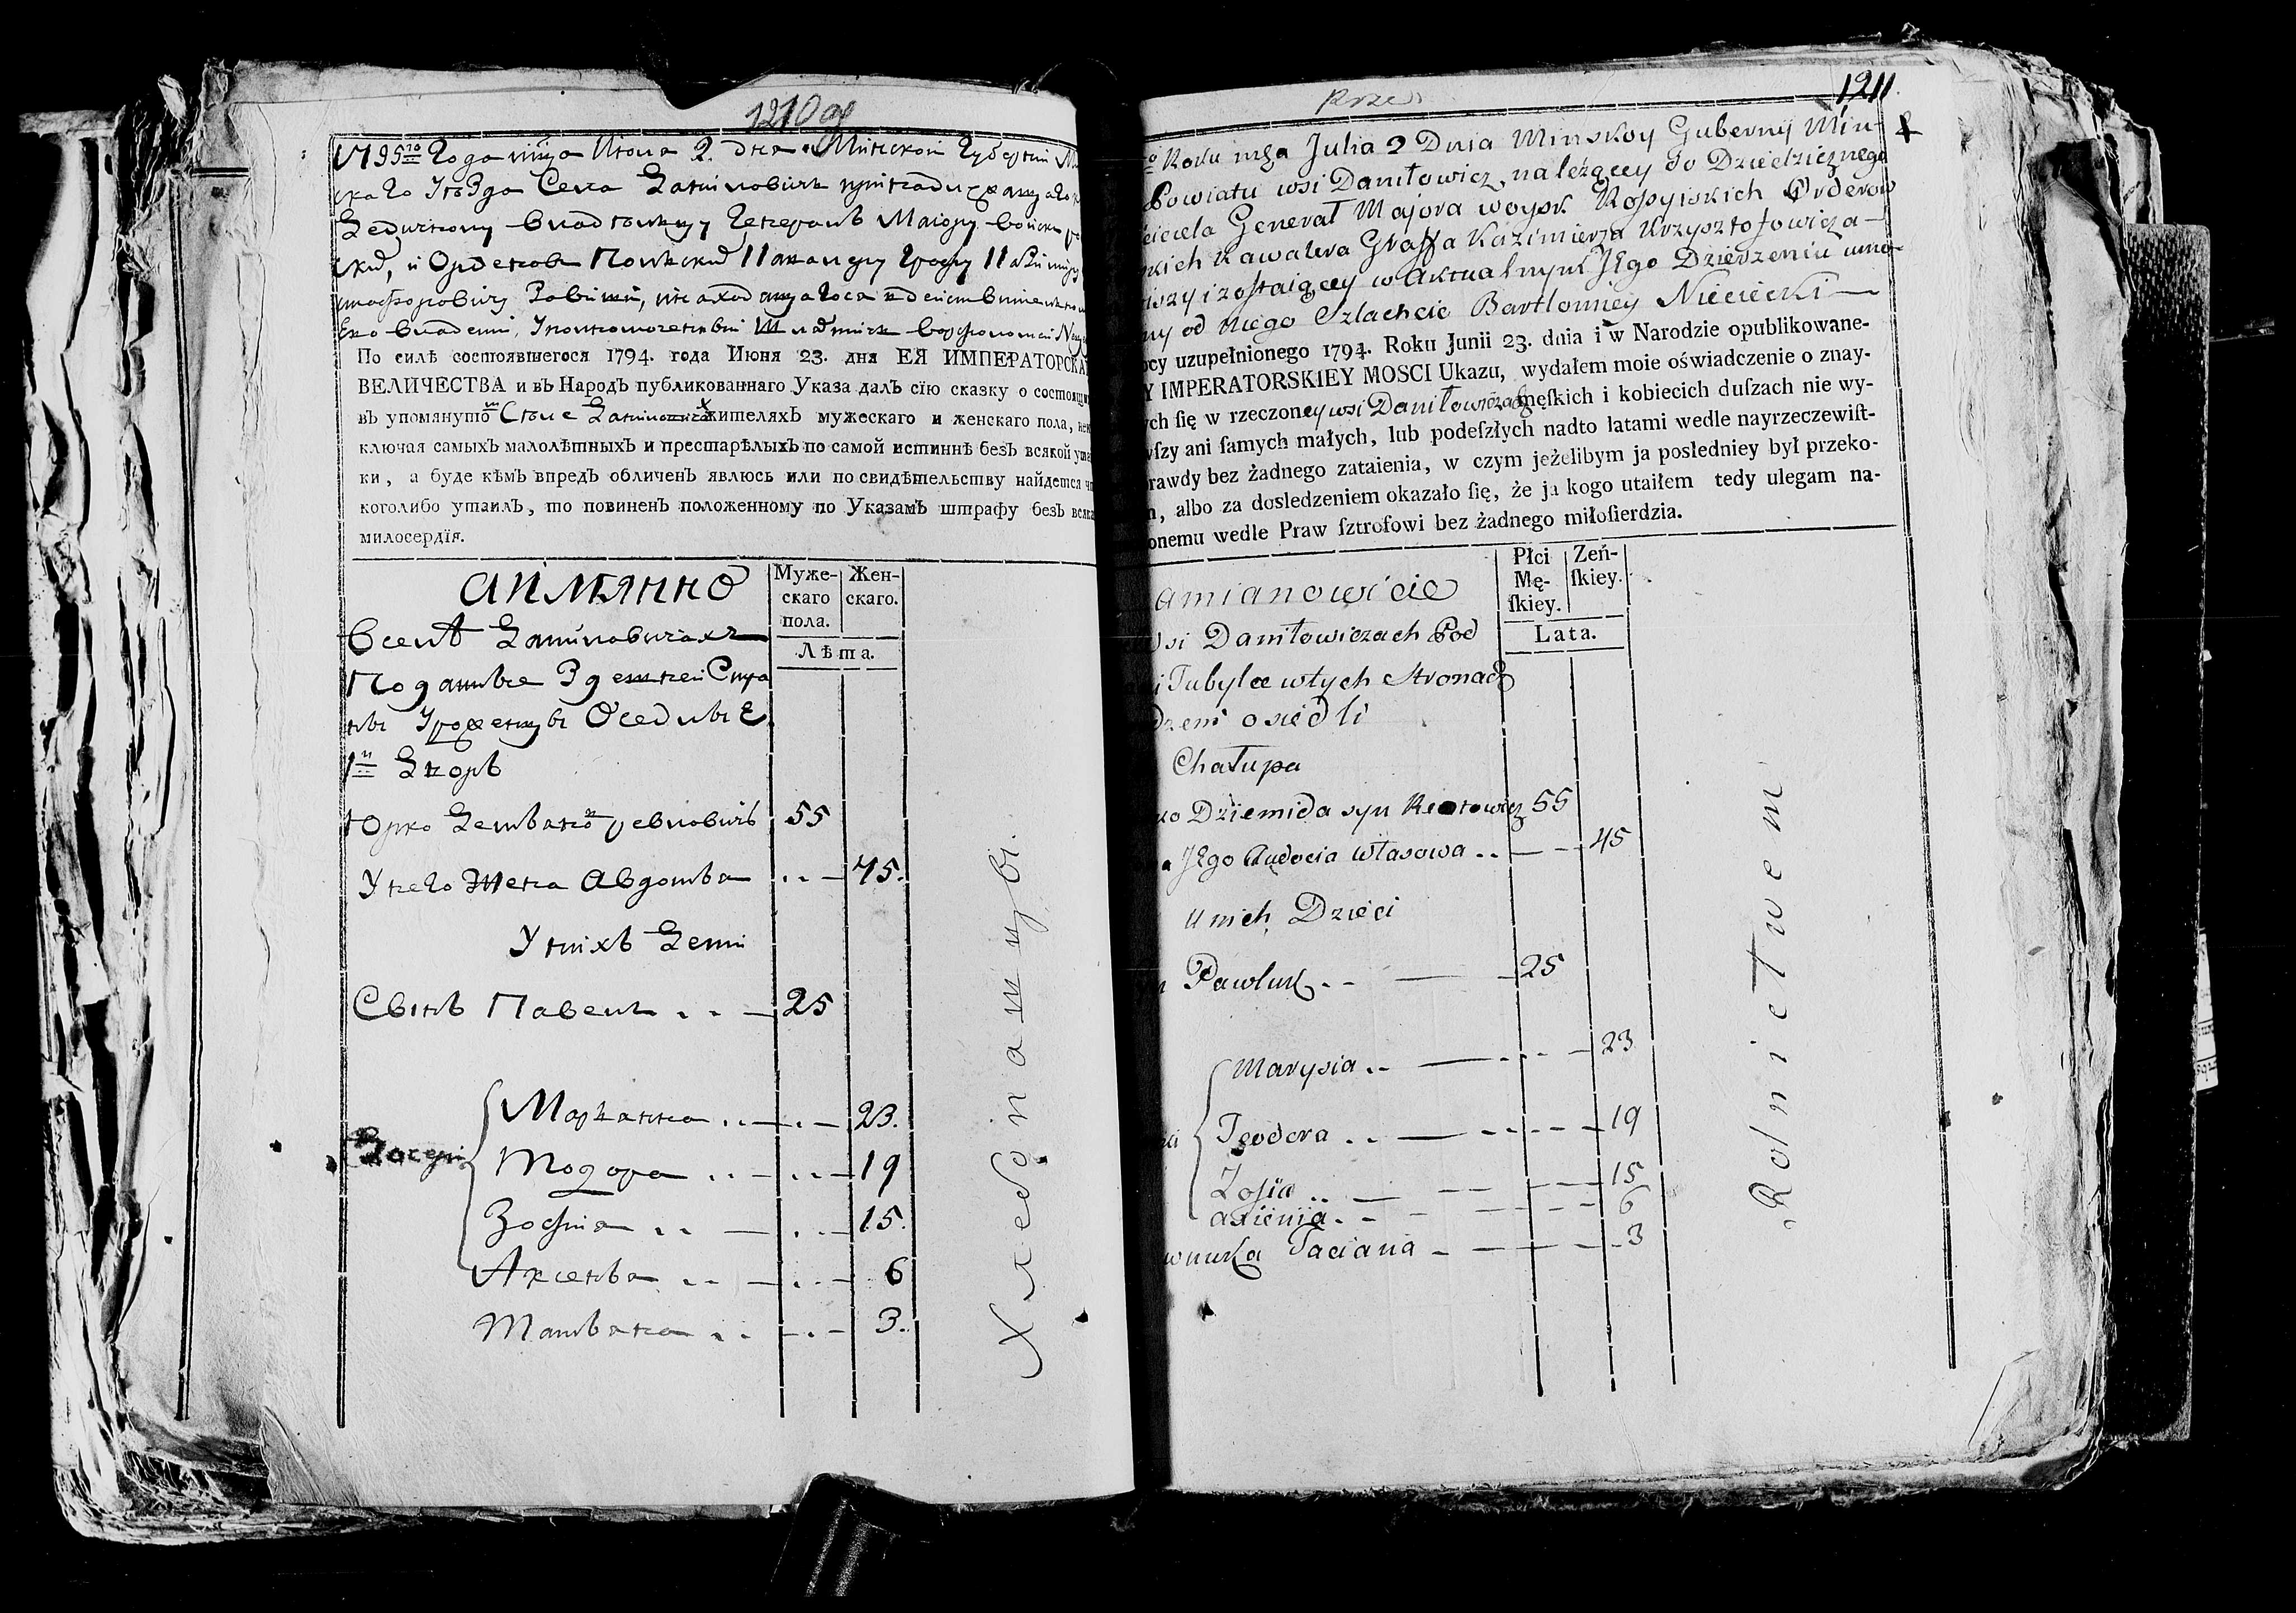 1210 об
1795го Года мца Июля 2. дня Минской Губернии
скаго Уезда Села Данилович принадлежащаго
дедичному владельцу Генералъ Маиору войскъ
ских, и Орденовъ Польских Кавалеру Графу
находящагося в действительном
Его владении, Уполномоченный Шляхтичъ
По силѣ состоявшегося 1794. года Июня 23. дня ЕЯ ИМПЕРАТОРСКА
ВЕЛИЧЕСТВА и въ НародЪ публикованнаго Указа далЪ сїю сказку о состоящи
въ упомянуто Селе Даниловичах жителяхЪ мужескаго и женскаго пола, неи
ключая самыхЪ малолѣтныхЪ и престарѣлыхЪ по самой истиннѣ безЪ всякой ута
ки, а буде кѣмЪ впредЪ обличенЪ явлюсь или по свидѣтельству найдется чт
коголибо утаилЪ, то повиненЪ положенному по УказамЪ штрафу безЪ всяка
милосердїя.
аимянно
Муже- скаго пола.
Жен- скаго.
Лѣта.
Вселѣ Даниловичахъ
Поданые Здешней Стра
ны Уроженцы Оседлые
1й Дворъ
Юрко 55
У него Жена Авдотья .. — 45.
У нихъ Дети
Сынъ Павелъ .. — 25
Марьяна .. — 23.
Дочери Тодора .. — 19
Зофия .. — 15.
Аксенья .. — 6
Татьяна .. — 3.
Хлебопашцы.
1211.
Roku mça Julia 2 Dnia Minskoy Guberny Miń-
Powiatu wsi Daniłowicz, należącey do Dziedzicznego
ciciela Generał Majora woysk Rossyiskich Orderow
skich Kawalera Graffa Kazimierza Krzysztofowicza —
iszy i zostaiącey w Aktualnym JEgo Dzierzeniu umo-
ny od niego Szlachcic Bartłomiey Niciecki —
ocy uzupełnionego 1794. Roku Junii 23. dnia i w Narodzie opublikowane-
Y IMPERATORSKIEY MOSCI Ukazu, wydałem moie oświadczenie o znay-
ych ſię w rzeczoney wsi Daniłowiczach męſkich i kobiecich duſzach nie wy-
yſzy ani ſamych małych, lub podeſzłych nadto latami wedle nayrzeczewiſt-
rawdy bez żadnego zataienia, w czym jeżelibym ja posledniey był przeko-
n, albo za dosledzeniem okazało ſię, że ja kogo utaiłem tedy ulegam na-
onemu wedle Praw ſztrofowi bez żadnego miłoſierdzia.
amianowicie
Płci Mę- ſkiey.
Zeń- ſkiey.
Lata.
wsi Daniłowiczach Pod
i Tubylce w tych Stronach
dzeni osiedli
Chałupa
ko Dziemida syn 55
a JEgo Audocia Własowa .. — 45
u nich Dzieci
n Pawluk .. — 25
Marysia .. — 23
Teodora .. — 19
Zofia .. — 15
axienia .. — 6
wnuka Taciana — 3
Rolnictwem